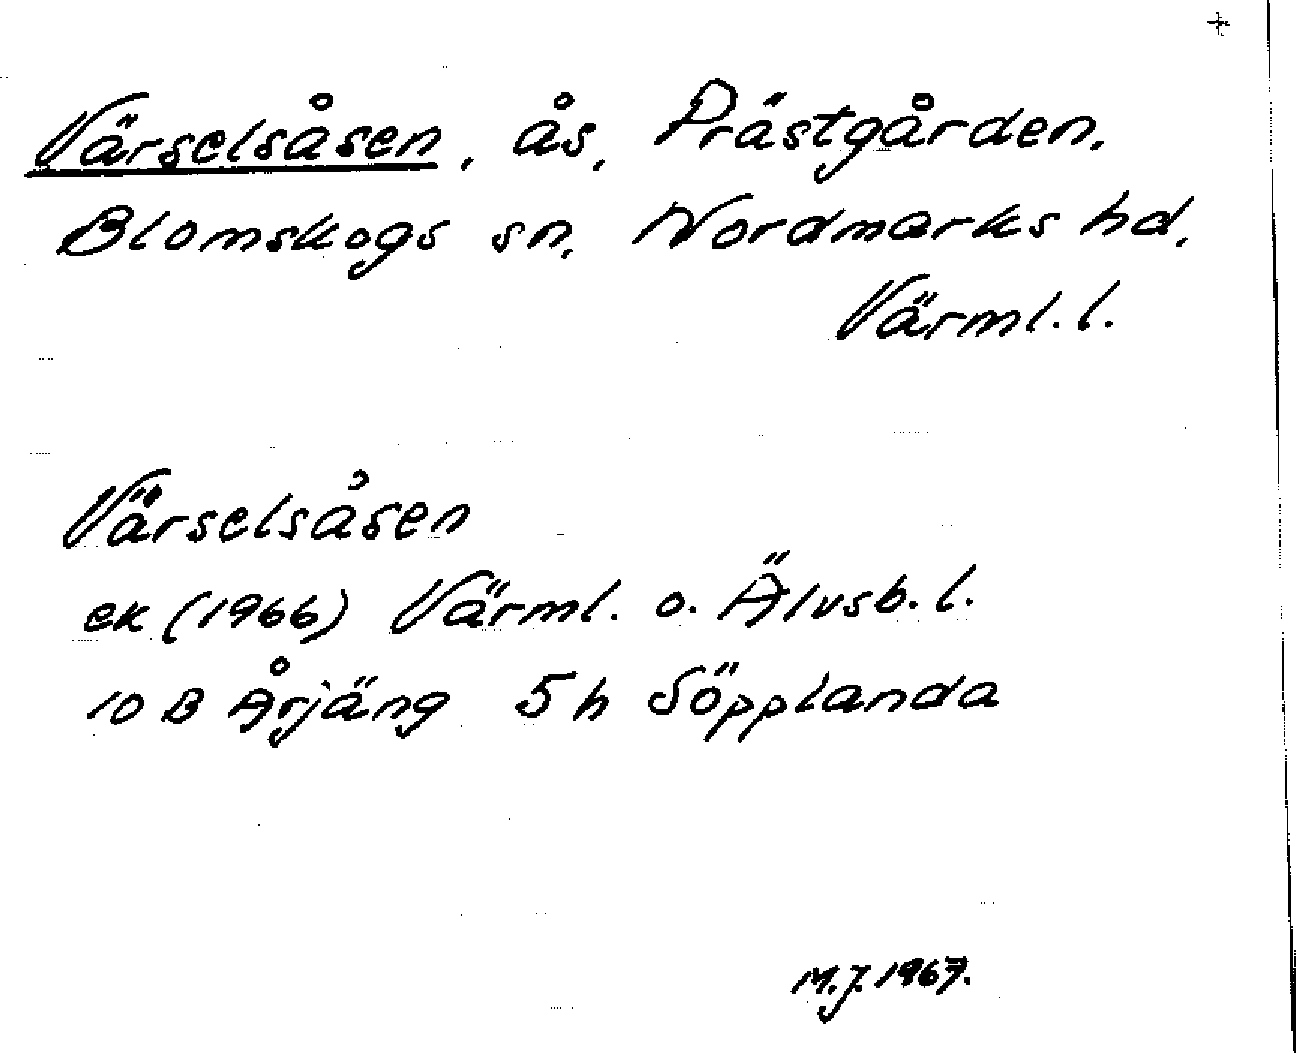 Värselsåsen, ås, Prästgården.
Blomskogs sn, Nordmarks hd,
Värml.l.
Värselsåsen
ek (1966) Värml. o. Älvsb.l.
10 B Årjäng 5h Söpplanda
M.J. 1967.